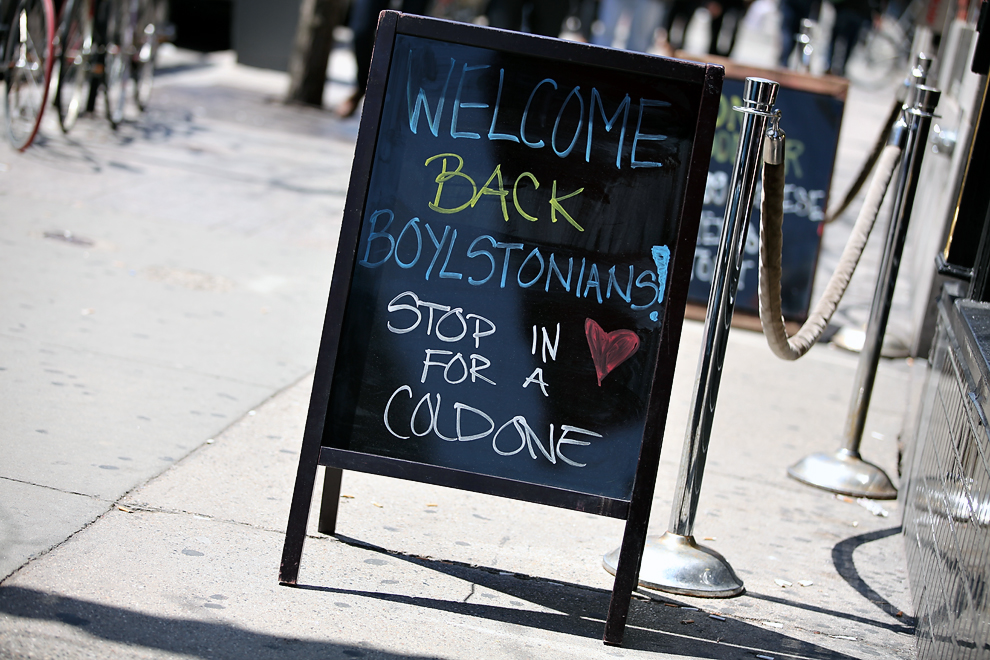 WELCOME
BACK
BOYLSTONIANS!
STOP IN
FOR A
COLD ONE